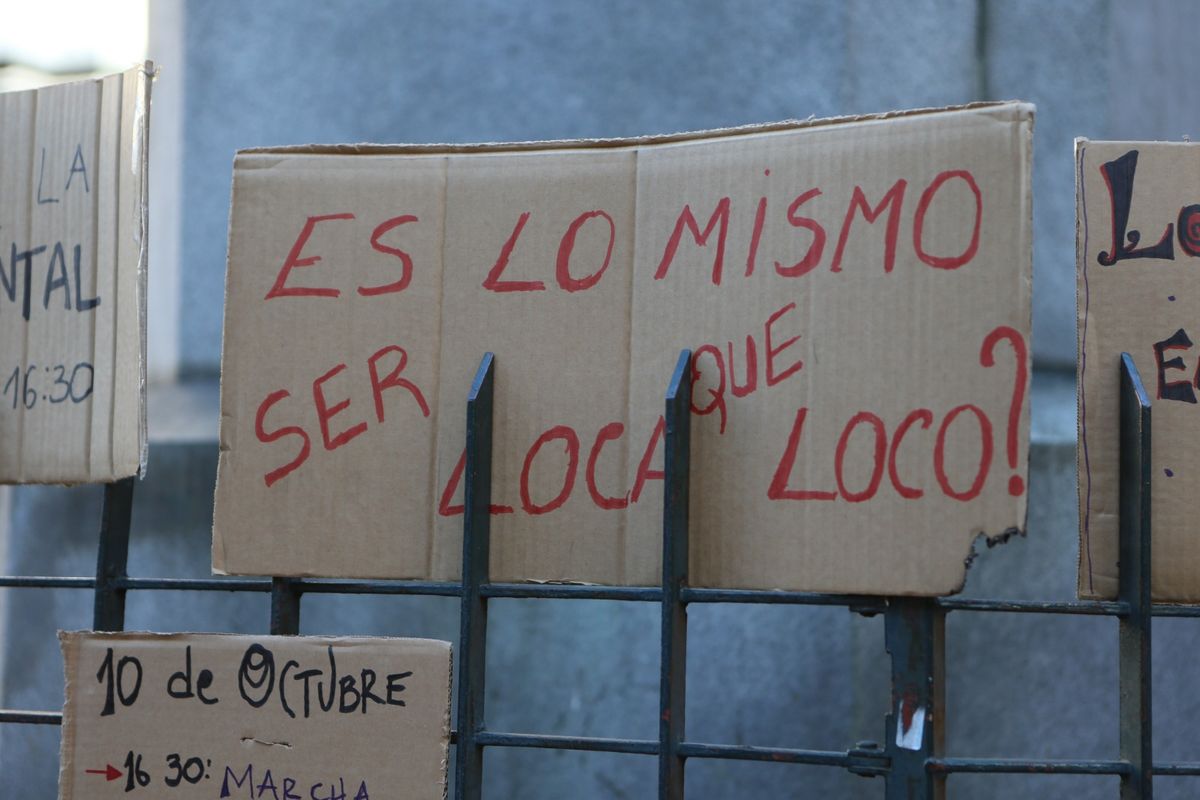 LA
NTAL
16:30
ES LO MISMO
SER LOCA QUE LOCO?
10 de OCTUBRE
→16 30: MARCHA